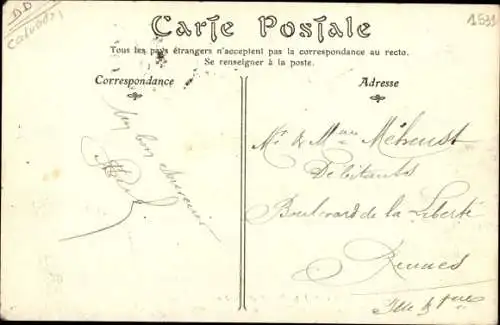 Calvados
1531
Carte Postale
Tous les pays étrangers n'acceptent pas la correspondance au recto.
Se renseigner à la poste.
Correspondance
Un bon souvenir
Adresse
Mr & Mme Méheust
Débitants
Boulevard de la Liberté
Rennes
Ille &